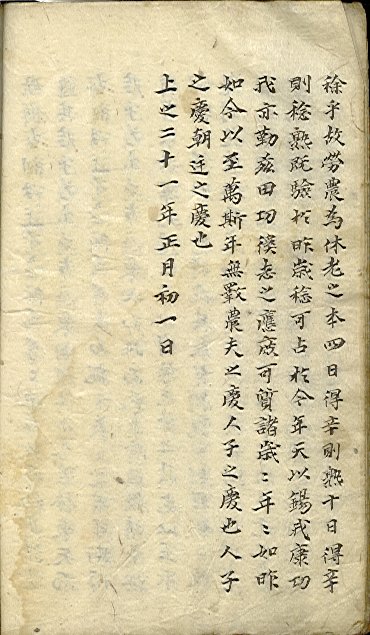 徐乎故勞農為休老之本四日得辛則熟十日得辛
則稔熟既驗於昨歲稔可占於今年天以錫我康功
我亦勤玆田功徯志之應庶可質諸歲〻年〻如昨
如今以至萬斯年無斁農夫之慶人子之慶也人子
之慶朝廷之慶也
上之二十一年正月初一日